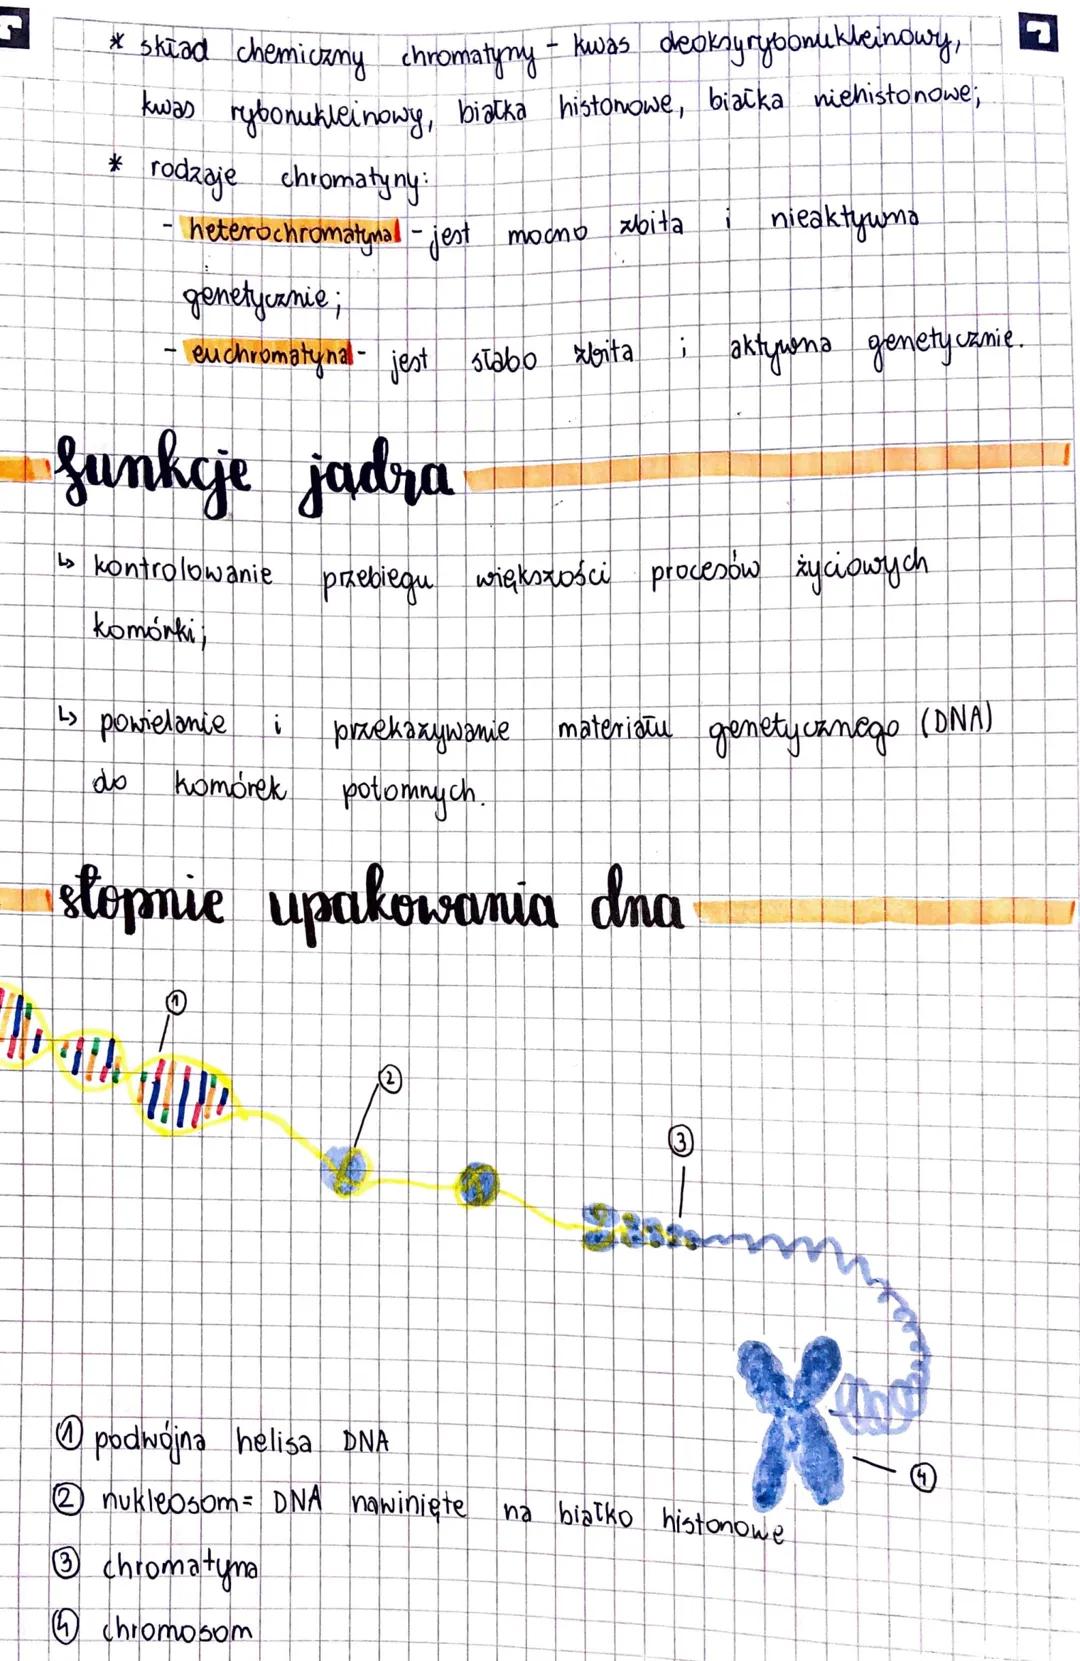 * skład chemiczny chromatyny - kwas deoksyrybonukleinowy,
kwas rybonukleinowy, białka histonowe, białka niehistonowe;
* rodzaje chromatyny:
- heterochromatyna - jest mocno zbita i nieaktywna
genetycznie;
- euchromatyna - jest słabo zbita i aktywna genetycznie.
funkcje jądra
↳ kontrolowanie przebiegu większości procesów życiowych
komórki;
↳ powielanie i przekazywanie materiału genetycznego (DNA)
do komórek potomnych.
stopnie upakowania dna
①
②
③
④
① podwójna helisa DNA
② nukleosom = DNA nawinięte na białko histonowe
③ chromatyna
④ chromosom